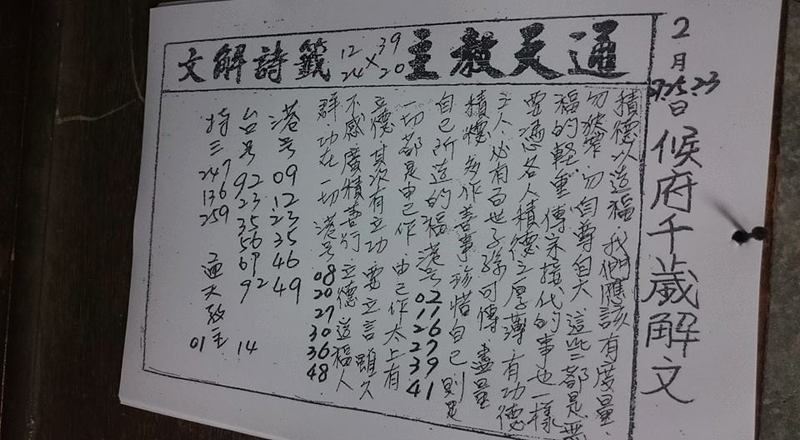 2月23 25 27日候府千歲解文
通天教主 39 20 × 12 24 籤詩解文
積德以造福,我們應該有度量
勿狹窄,勿自尊自大 這些都是無
福的輕重,傳宗接代的事也一樣
要憑各人積德之厚薄,有功德
之人,必有百世子孫可傳 盡量
積德,多作善事,珍惜自己 則是
自己所造的福 港号
一切都是由己作 由己作太上有
立德 其次有立功 要立言 雖久
不感 廣積善行 立德 造福人
群 功在一切 港号 08 20 27 30 36 48
港号 09 12 23 35 46 49
台号 92 23 35 56 69 92 14
特三 247 136 259 通天教主 01